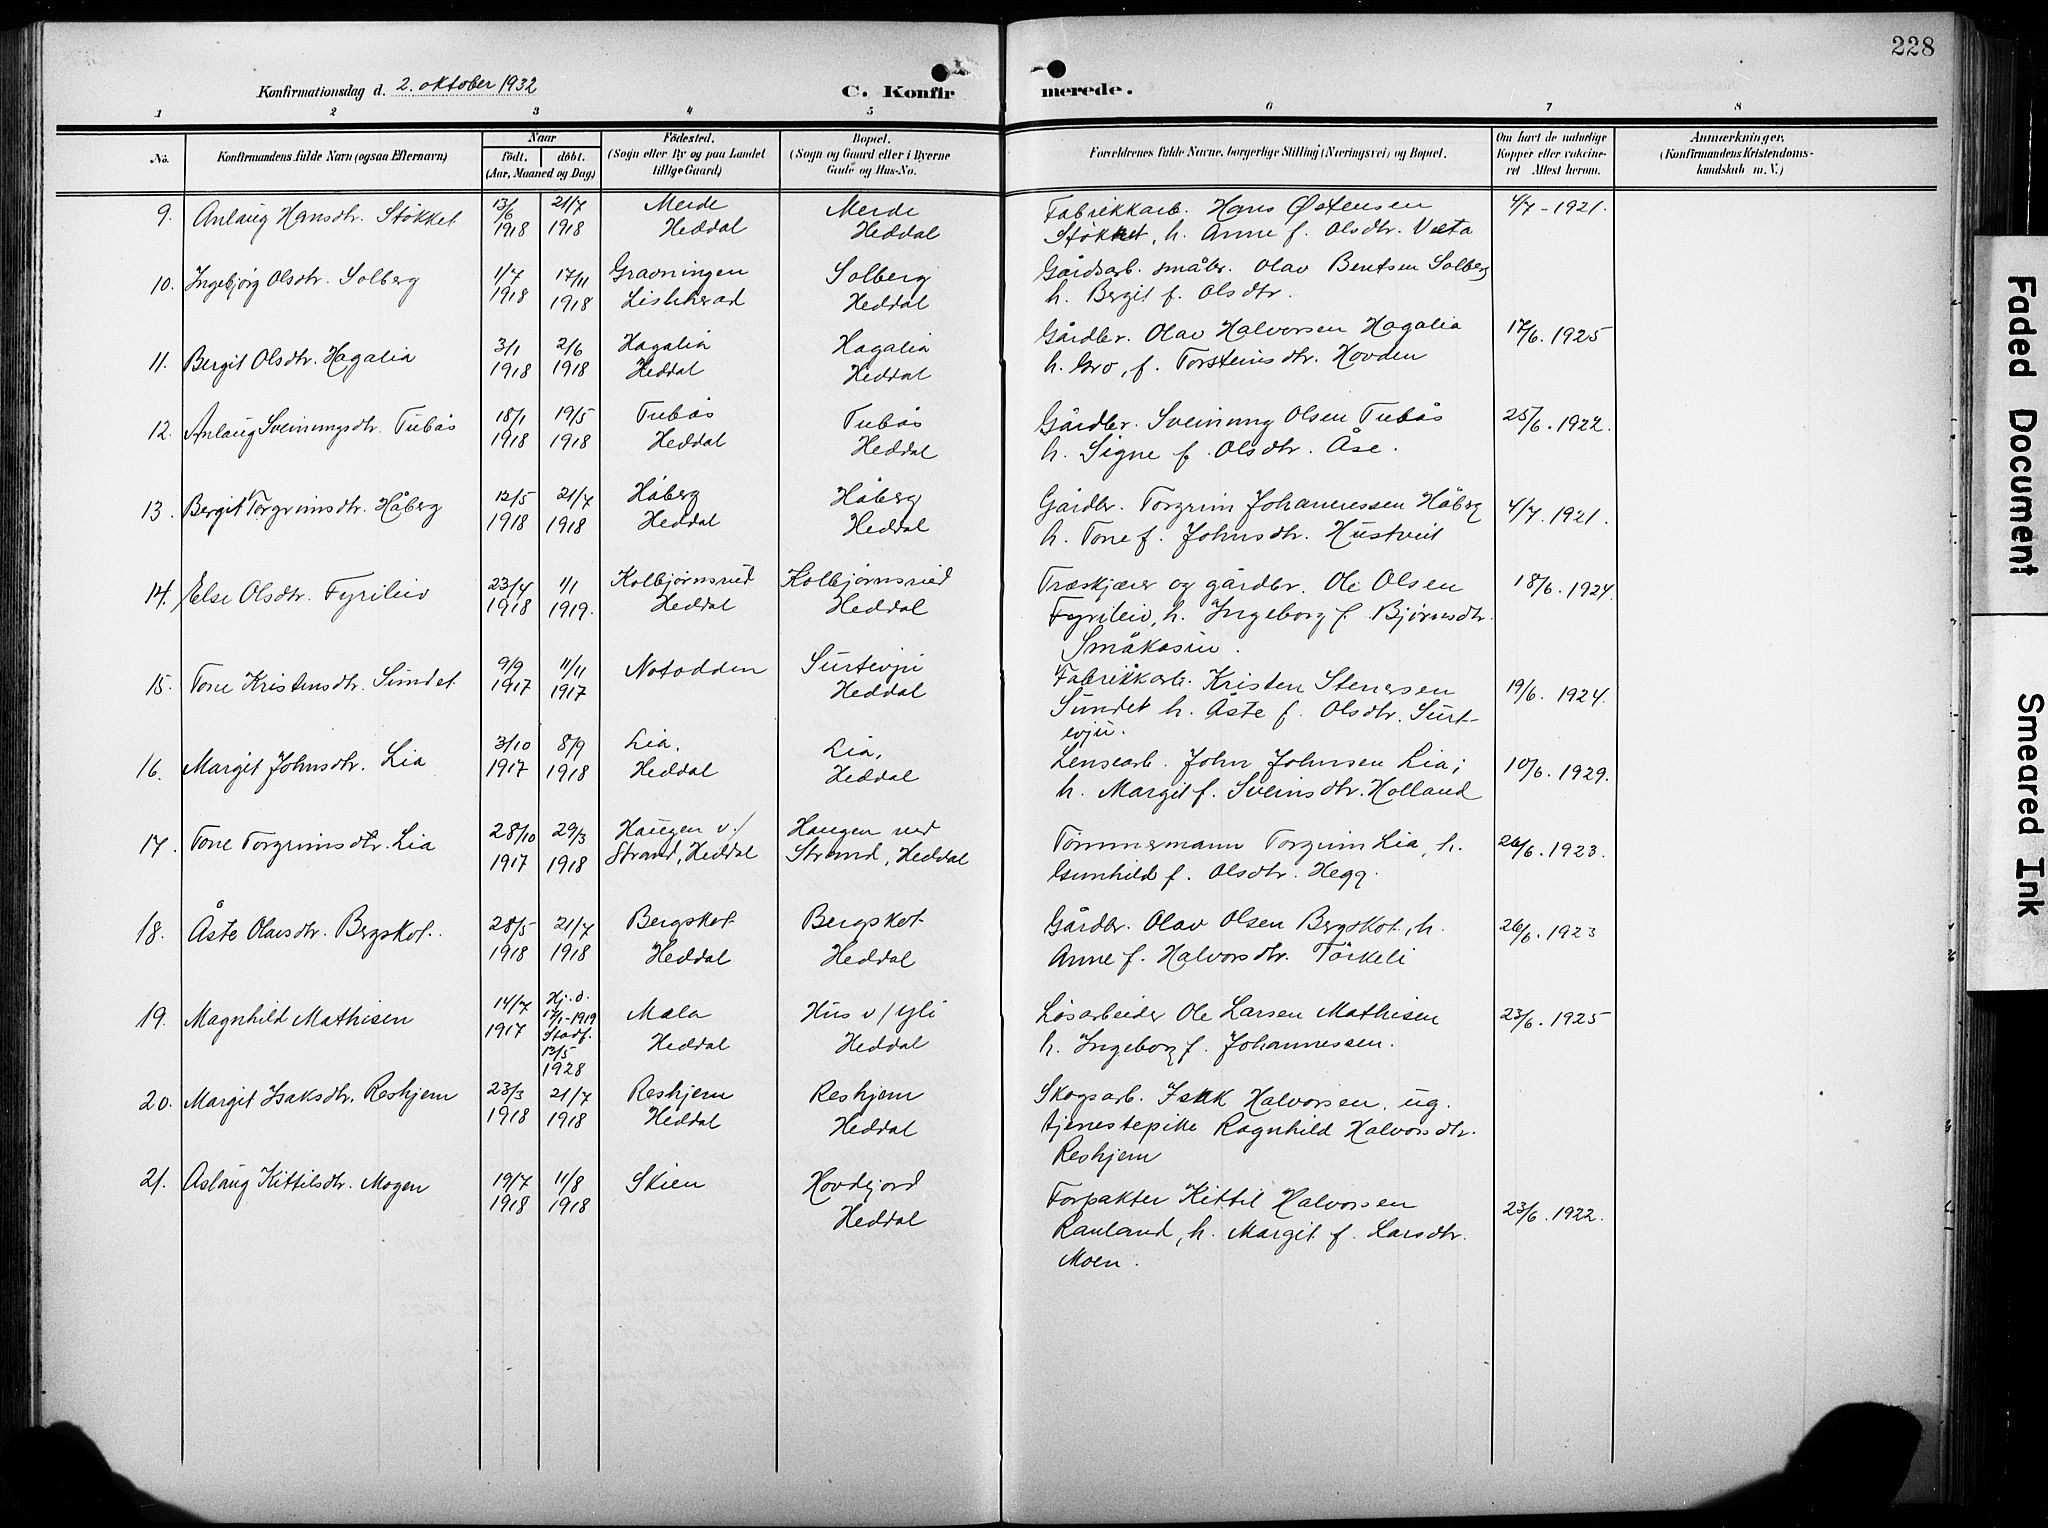 228
Konfirmationsdag d. 2. oktober 1932
C. Konfirmerede.
1 2 3 4 5 6 7 8
No.
Konfirmandens fulde Navn (ogsaa Efternavn)
Naar
födt. döbt.
(Aar, Maaned og Dag)
Födested.
(Sogn eller By og paa Landet
tillige Gaard)
Bopæl.
(Sogn og Gaard eller i Byerne
Gade og Hus-No.
Forældrenes fulde Navne, borgerlige Stilling (Næringsvei) og Bopæl.
Om havt de naturlige
Kopper eller vakcine-
ret Attest herom.
Anmærkninger.
(Konfirmandens Kristendoms-
kundskab m. V.)
9. Anlaug Hansdtr. Støkket 13/6 21/7 Merde Merde Fabrikkarb. Hans Østensen 4/7-1921.
1918 1918 Heddal Heddal Støkket, h. Anne f. Olsdtr. Veta
10. Ingebjørg Olsdtr. Solberg 1/7 17/11 Gravningen Solberg Gårdsarb. småbr. Olav Bentsen Solberg
1918 1918 Lisleherad Heddal h. Bergit f. Olsdtr.
11. Bergit Olsdtr. Hagalia 3/1 2/6 Hagalia Hagalia Gårdbr. Olav Halvorsen Hagalia 17/6.1925
1918 1918 Heddal Heddal h. Gro, f. Torsteinsdtr. Hovden
12. Anlaug Sveinungsdtr. Tubås 18/1 19/5 Tubås Tubås Gårdbr. Sveinung Olsen Tubås 25/6.1922.
1918 1918 Heddal Heddal h. Signe f. Olsdtr. Åse.
13. Bergit Torgrimsdtr. Håberg 12/5 21/7 Håberg Håberg Gårdbr. Torgrim Johannessen Håberg 4/7.1921.
1918 1918 Heddal Heddal h. Tone f. Johnsdtr. Hustveit
14. Else Olsdtr. Fyrileiv 23/4 1/1 Kolbjørnsrud Kolbjørnsrud Træskjærer og gårdbr. Ole Olsen 18/6.1924.
1918 1919. Heddal Heddal Fyrileiv, h. Ingeborg f. Bjørnsdtr.
Småkasin.
15. Tone Kristensdtr. Sundet 9/9 11/11 Notodden Surtevju Fabrikkarb. Kristen Stenersen 19/6.1924.
1917 1917 Heddal Sundet h. Åste f. Olsdtr. Surt-
evju.
16. Margit Johnsdtr. Lia 3/10 8/9 Lia, Lia, Lensearb. John Johnsen Lia; 10/6.1929.
1917 1918 Heddal Heddal h. Margit f. Sveinsdtr. Holland
17. Tone Torgrimsdtr. Lia 28/10 29/3 Haugen v./ Haugen ved Tömmermann Torgrim Lia, h. 26/6.1923.
1917 1918 Strand, Heddal Strand, Heddal Gunhild f. Olsdtr. Hegg.
18. Åste Olavsdtr. Bergskot. 28/5 21/7 Bergskot. Bergskot Gårdbr. Olav Olsen Bergskot, h. 26/6.1923
1918 1918 Heddal Heddal Anne f. Halvorsdtr. Törkeli
19. Magnhild Mathisen 14/7 Hj.d. Mæla Hus v/ Yli Lösarbeider Ole Larsen Mathisen 23/6.1925
1917 17/1-1919 Heddal Heddal h. Ingeborg f. Johannessen.
Stadf.
13/5
1928
20. Margit Isaksdtr. Reskjem 23/3 21/7 Reskjem Reskjem Skogsarb. Isak Halvorsen, ug.
1918 1918 Heddal Heddal tjenestepike Ragnhild Halvorsdtr.
Reskjem
21. Aslaug Kittilsdtr. Mogen 19/7 11/8 Skien Hovdejord Forpakter Kittil Halvorsen 23/6.1922.
1918 1918 Heddal Rauland, h. Margit f. Larsdtr.
Moen.
Faded Document
Smeared Ink